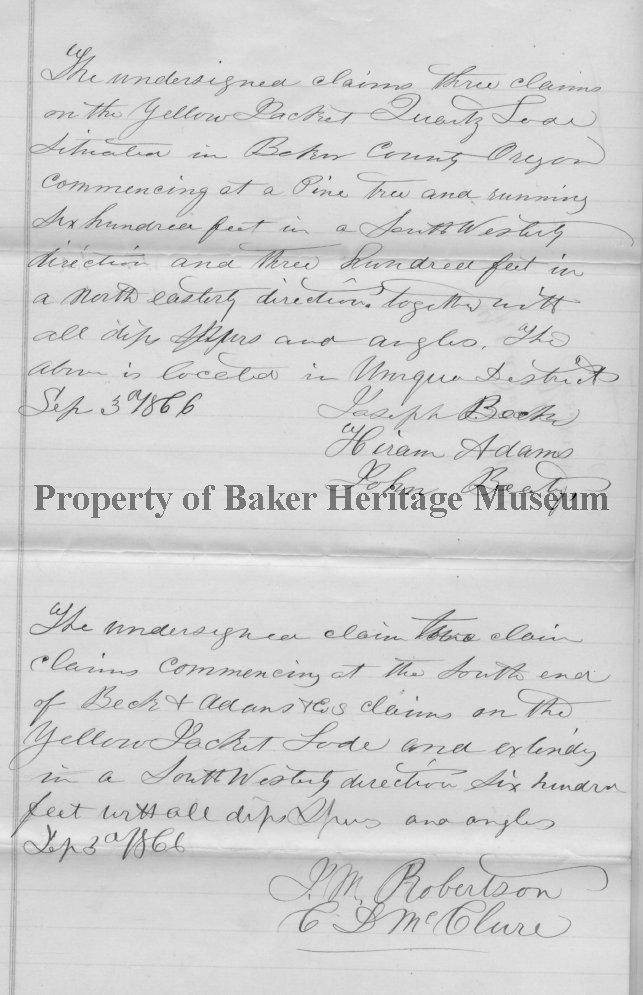 The undersigned claims three claims
on the Yellow Jacket Quartz Lode
Situated in Baker County Oregon
Commencing at a Pine Tree and running
Six hundred feet in a South Westerly
direction and three hundred feet in
a north easterly direction together with
all dips Spurs and angles. The
above is located in District
Sep 3d 1866
Joseph Beck
Hiram Adams
John
Property of Baker Heritage Museum
The undersigned claim two claim
claims commencing at the South end
of Beck & Adams & Co's claims on the
Yellow Jacket Lode and extending
in a South Westerly direction Six hundred
feet with all dips Spurs and angles
Sep 3d 1866
J. M. Robertson
C D McClure